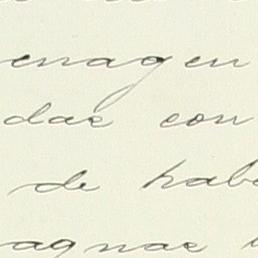 enagen
das con
de habe
agnae